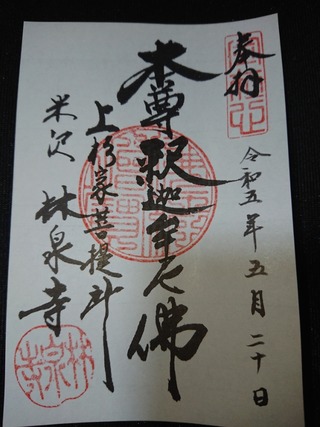 奉拝
令和五年五月二十日
本尊釈迦牟尼佛
上杉家菩提所
米沢
林泉寺
林泉寺